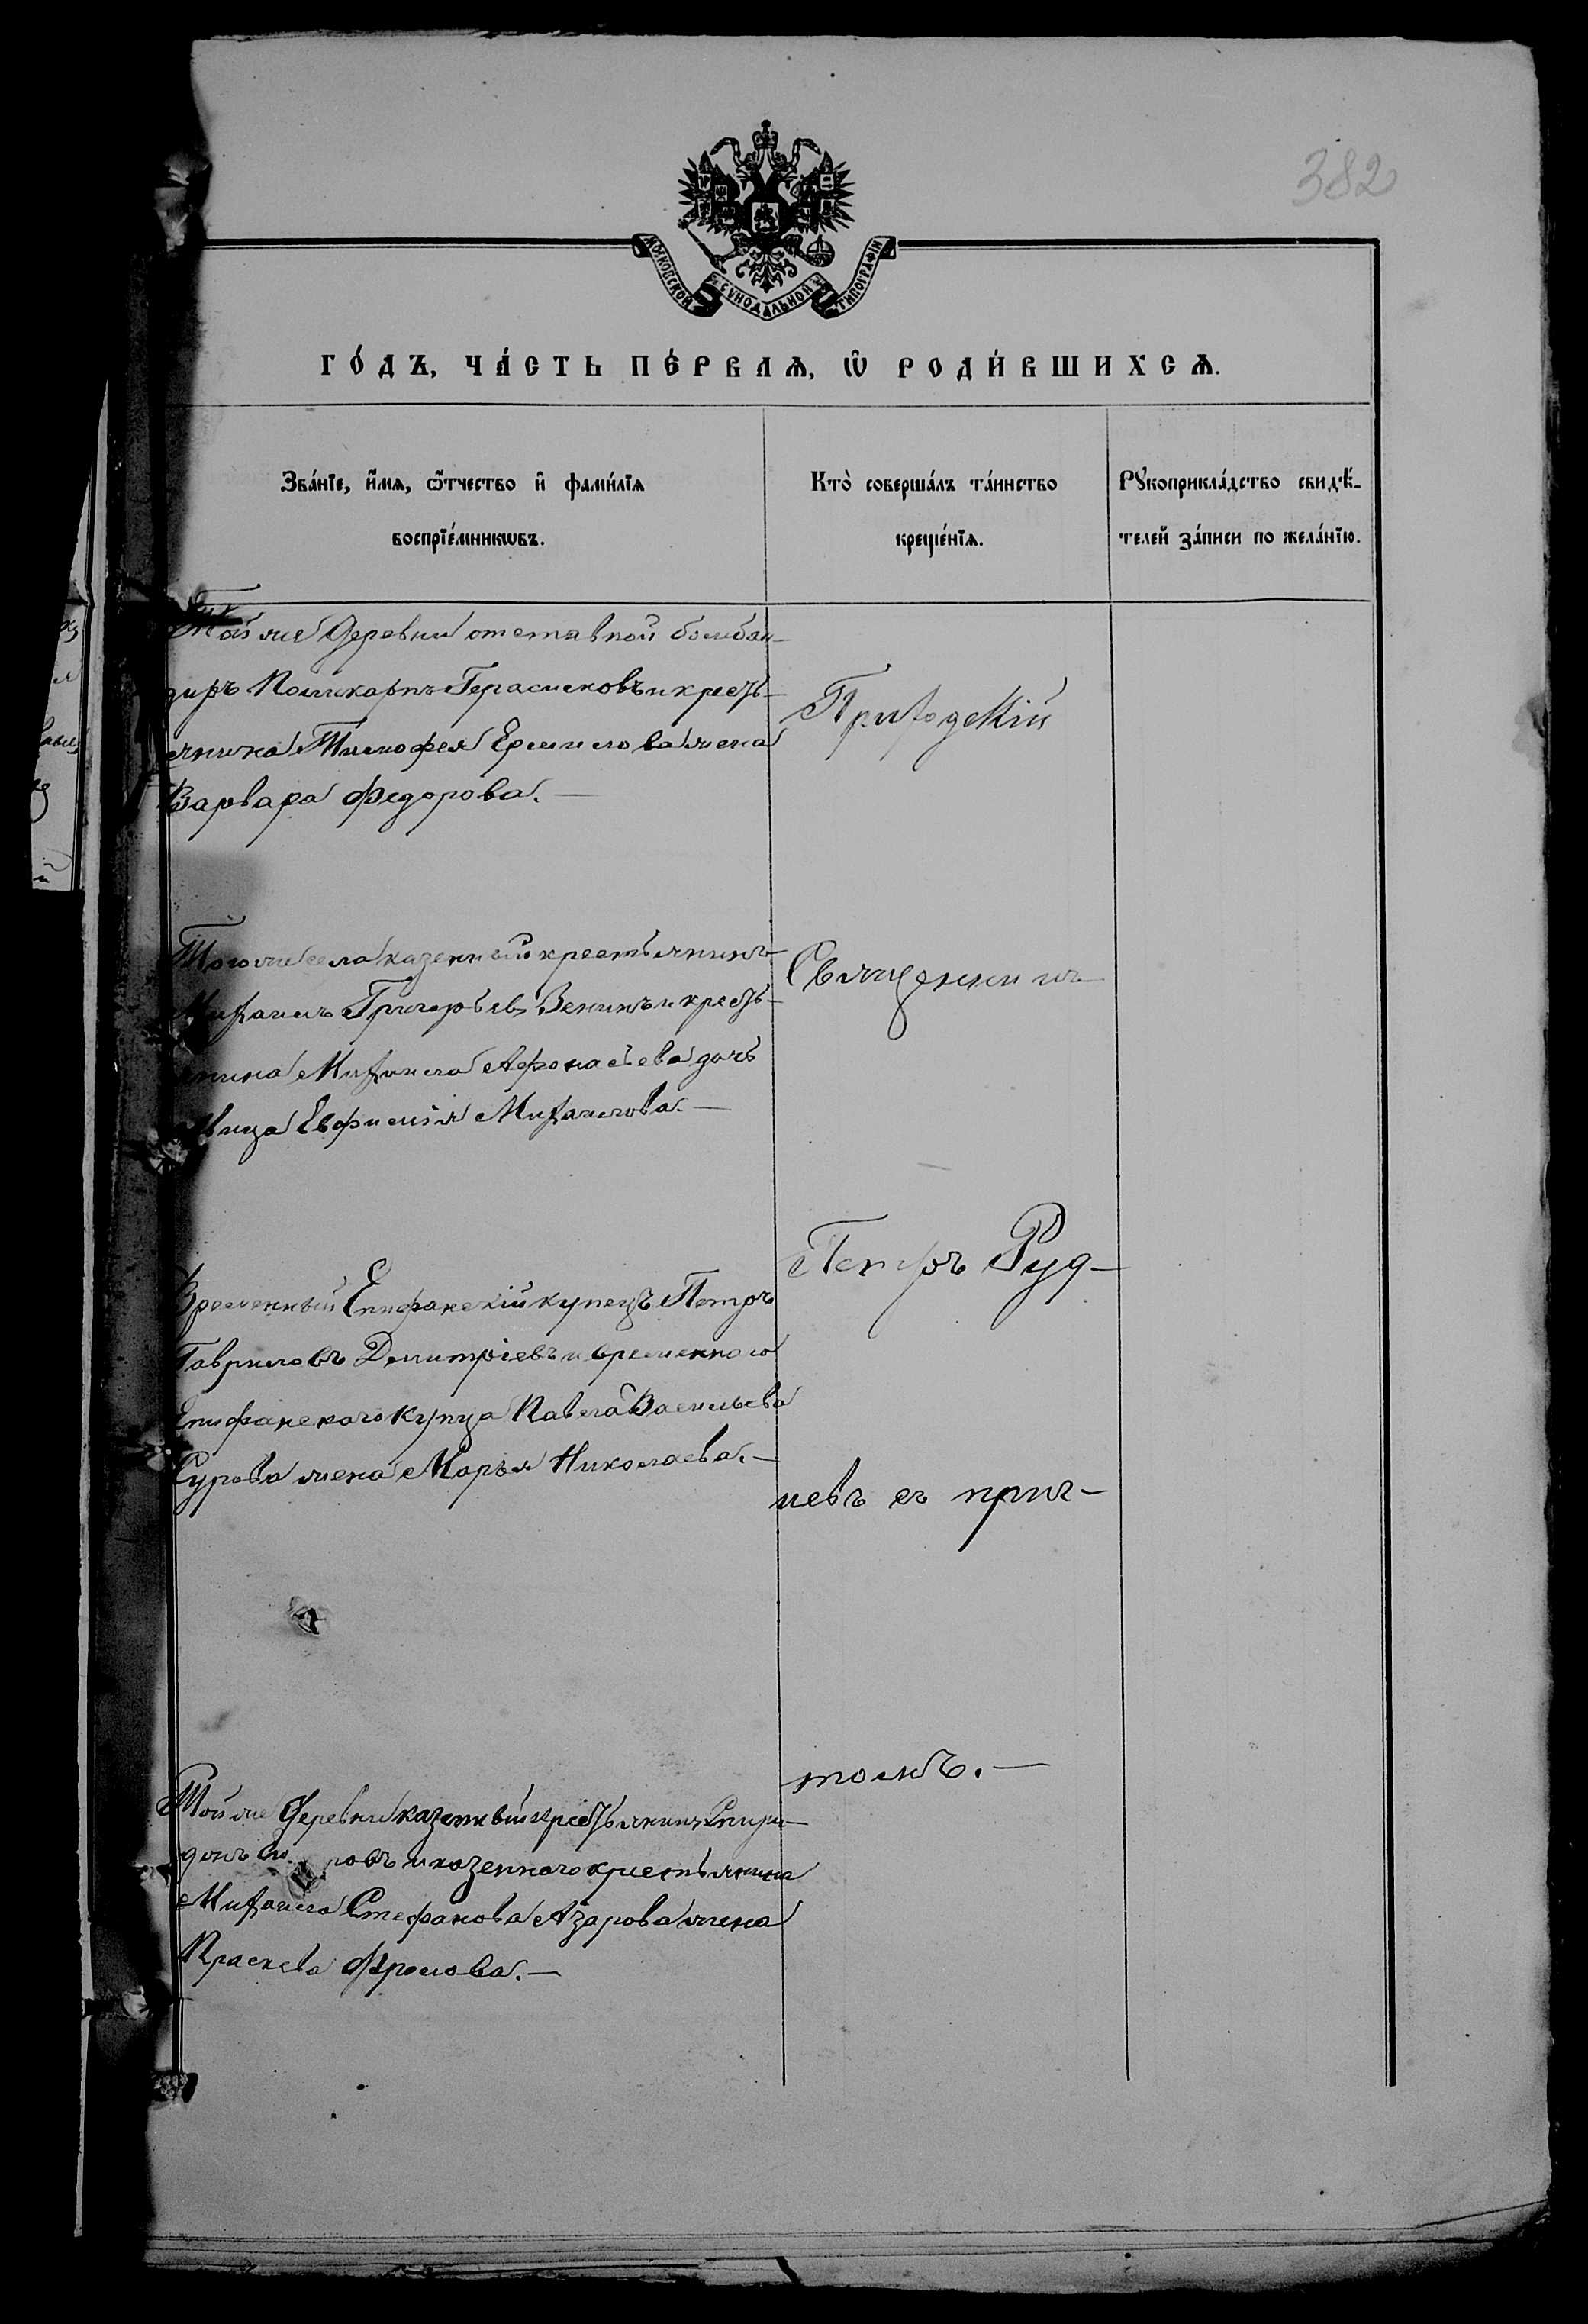 382
МОСКОВСКОЙ СѴНОДАЛЬНОЙ ТИПОГРАФІИ
ГО́ДЪ, ЧА́СТЬ ПЕ́РВАѦ, Ѽ РОДИ́ВШИХСѦ.
Зва́нїе, и҆́мѧ, ѻ҆́тчество и҆ фами́лїѧ
воспрїе́мникѡвъ.
Кто̀ соверша́лъ та́инство
креще́нїѧ.
Рꙋкоприкла́дство свидѣ́-
телей за́писи по жела́нїю.
Той же деревни отставной бомбан-
диръ Поликарпъ Герасимовъ и кресть-
янина Тимофея Ермилова жена
Варвара Федорова. —
Того же села казенный крестьянинъ
Михаилъ Григорьевъ Венинъ и кресть-
янина Михаила Афонасьева дочь
Евфимія Михаилова. —
Временный Епифанскій купецъ Петръ
Гавриловъ Димитріевъ и временнаго
Епифанскаго купца Павла Васильева
Сурова жена Марья Николаева. —
Той же деревни казенный крестьянинъ Спири-
донъ и казеннаго крестьянина
Михаила Стефанова Азарова жена
Праскева Фролова. —
Приходскій
Священникъ
Петръ Руд-
невъ съ прич-
томъ. —